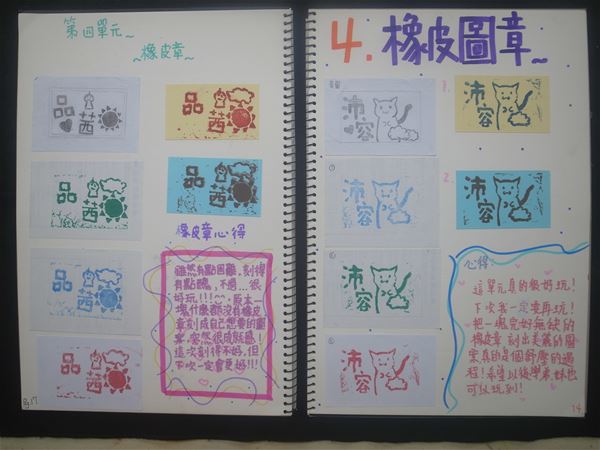 第四單元~
~橡皮章~
品茜
品茜
品茜
品茜
品茜
品茜
橡皮章心得
雖然有點困難,刻得
有點醜,不過...很
好玩!!!^^,原本一
塊什麼都沒有橡皮
章刻成自己想要的圖
案,突然很成就感!
這次刻得不好,但
下次一定會更好!!!
Pg.37
4.橡皮圖章~
沛容
1.
沛容
沛容
2.
沛容
沛容
沛容
心得:
這單元真的很好玩!
下次我一定要再玩!
把一塊完好無缺的
橡皮章刻出美麗的圖
案真的是個舒壓的過
程!希望以後學弟妹也
可以玩到!
14